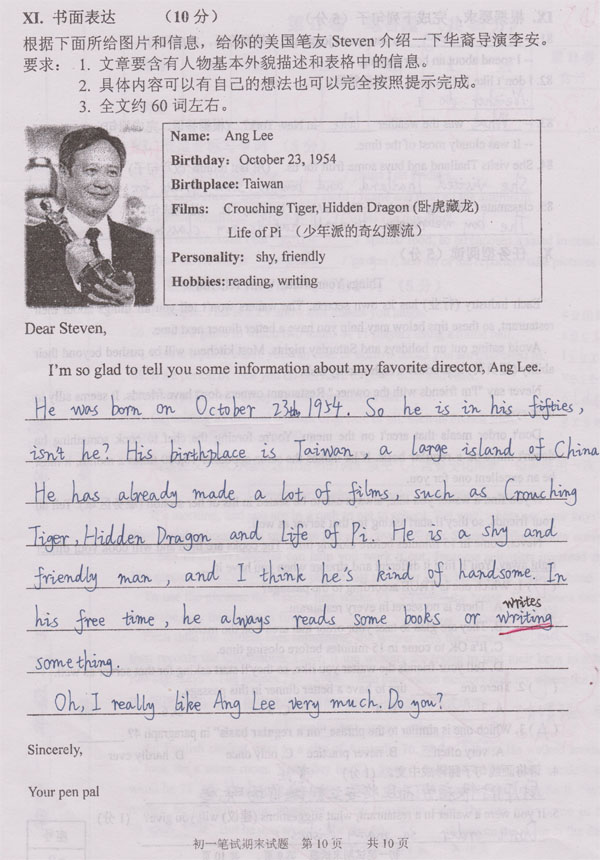 XI. 书面表达 （10 分）
根据下面所给图片和信息，给你的美国笔友 Steven 介绍一下华裔导演李安。
要求：1. 文章要含有人物基本外貌描述和表格中的信息。
2. 具体内容可以有自己的想法也可以完全按照提示完成。
3. 全文约 60 词左右。
Name: Ang Lee
Birthday: October 23, 1954
Birthplace: Taiwan
Films: Crouching Tiger, Hidden Dragon (卧虎藏龙)
Life of Pi （少年派的奇幻漂流）
Personality: shy, friendly
Hobbies: reading, writing
Dear Steven,
I'm so glad to tell you some information about my favorite director, Ang Lee.
He was born on October 23th, 1954. So he is in his fifties,
isn't he? His birthplace is Taiwan, a large island of China
He has already made a lot of films, such as Crouching
Tiger, Hidden Dragon and Life of Pi. He is a shy and
friendly man, and I think he's kind of handsome. In
writes
his free time, he always reads some books or writing
something.
Oh, I really like Ang Lee very much. Do you?
Sincerely,
Your pen pal
初一笔试期末试题 第 10 页 共 10 页